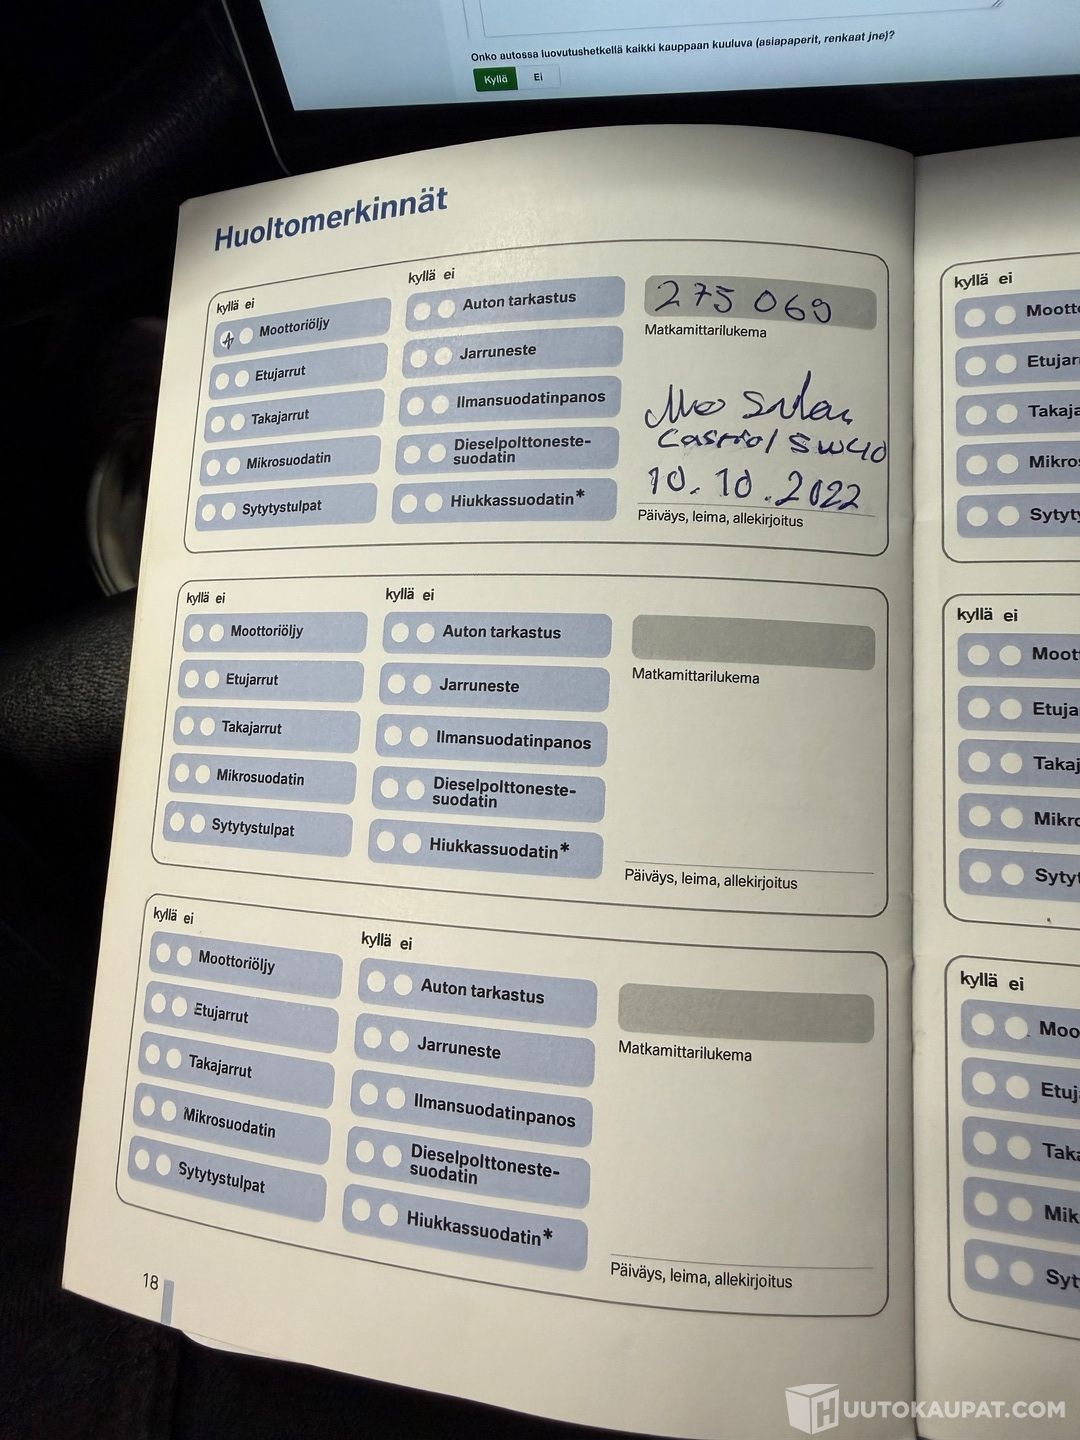 Onko autossa luovutushetkellä kaikki kauppaan kuuluva (asiapaperit, renkaat jne)?
Kyllä Ei
Huoltomerkinnät
kyllä ei
Moottoriöljy
Etujarrut
Takajarrut
Mikrosuodatin
Sytytystulpat
kyllä ei
Auton tarkastus
Jarruneste
Ilmansuodatinpanos
Dieselpolttoneste-
suodatin
Hiukkassuodatin*
275 069
Matkamittarilukema
Castrol 5W40
10.10.2022
Päiväys, leima, allekirjoitus
kyllä ei
Moottoriöljy
Etujarrut
Takajarrut
Mikrosuodatin
Sytytystulpat
kyllä ei
Auton tarkastus
Jarruneste
Ilmansuodatinpanos
Dieselpolttoneste-
suodatin
Hiukkassuodatin*
Matkamittarilukema
Päiväys, leima, allekirjoitus
kyllä ei
Moottoriöljy
Etujarrut
Takajarrut
Mikrosuodatin
Sytytystulpat
kyllä ei
Auton tarkastus
Jarruneste
Ilmansuodatinpanos
Dieselpolttoneste-
suodatin
Hiukkassuodatin*
Matkamittarilukema
Päiväys, leima, allekirjoitus
18
kyllä ei
Moott
Etujar
Takaja
Mikro
Sytyt
kyllä ei
Moott
Etuja
Takaj
Mikro
Sytyt
kyllä ei
Moo
Etuj
Taka
Mik
Syt
HUUTOKAUPAT.COM